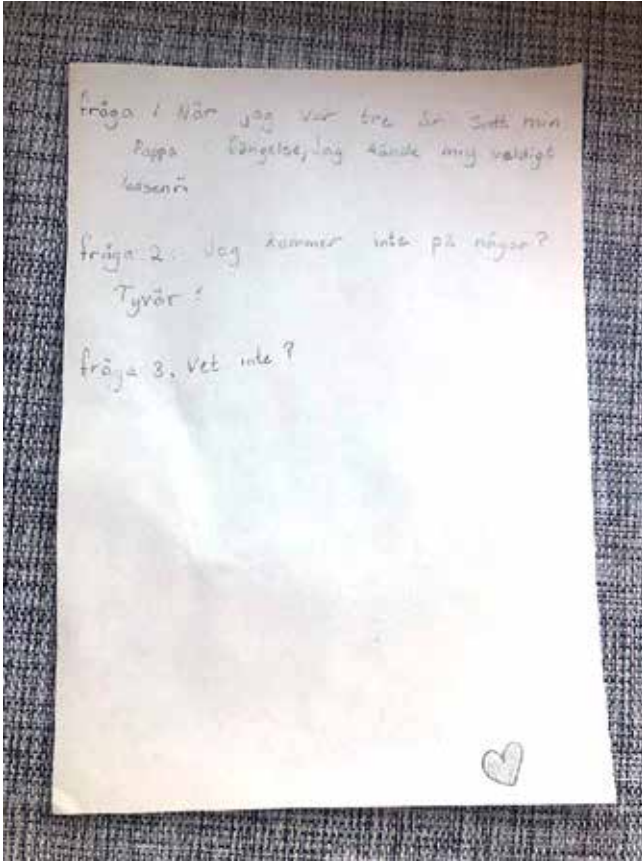 fråga 1 När jag var tre år satt min
Pappa fängelse, Jag kände mig väldigt
ledsen
fråga 2: Jag kommer inte på någor?
Tyvär!
fråga 3. Vet inte?